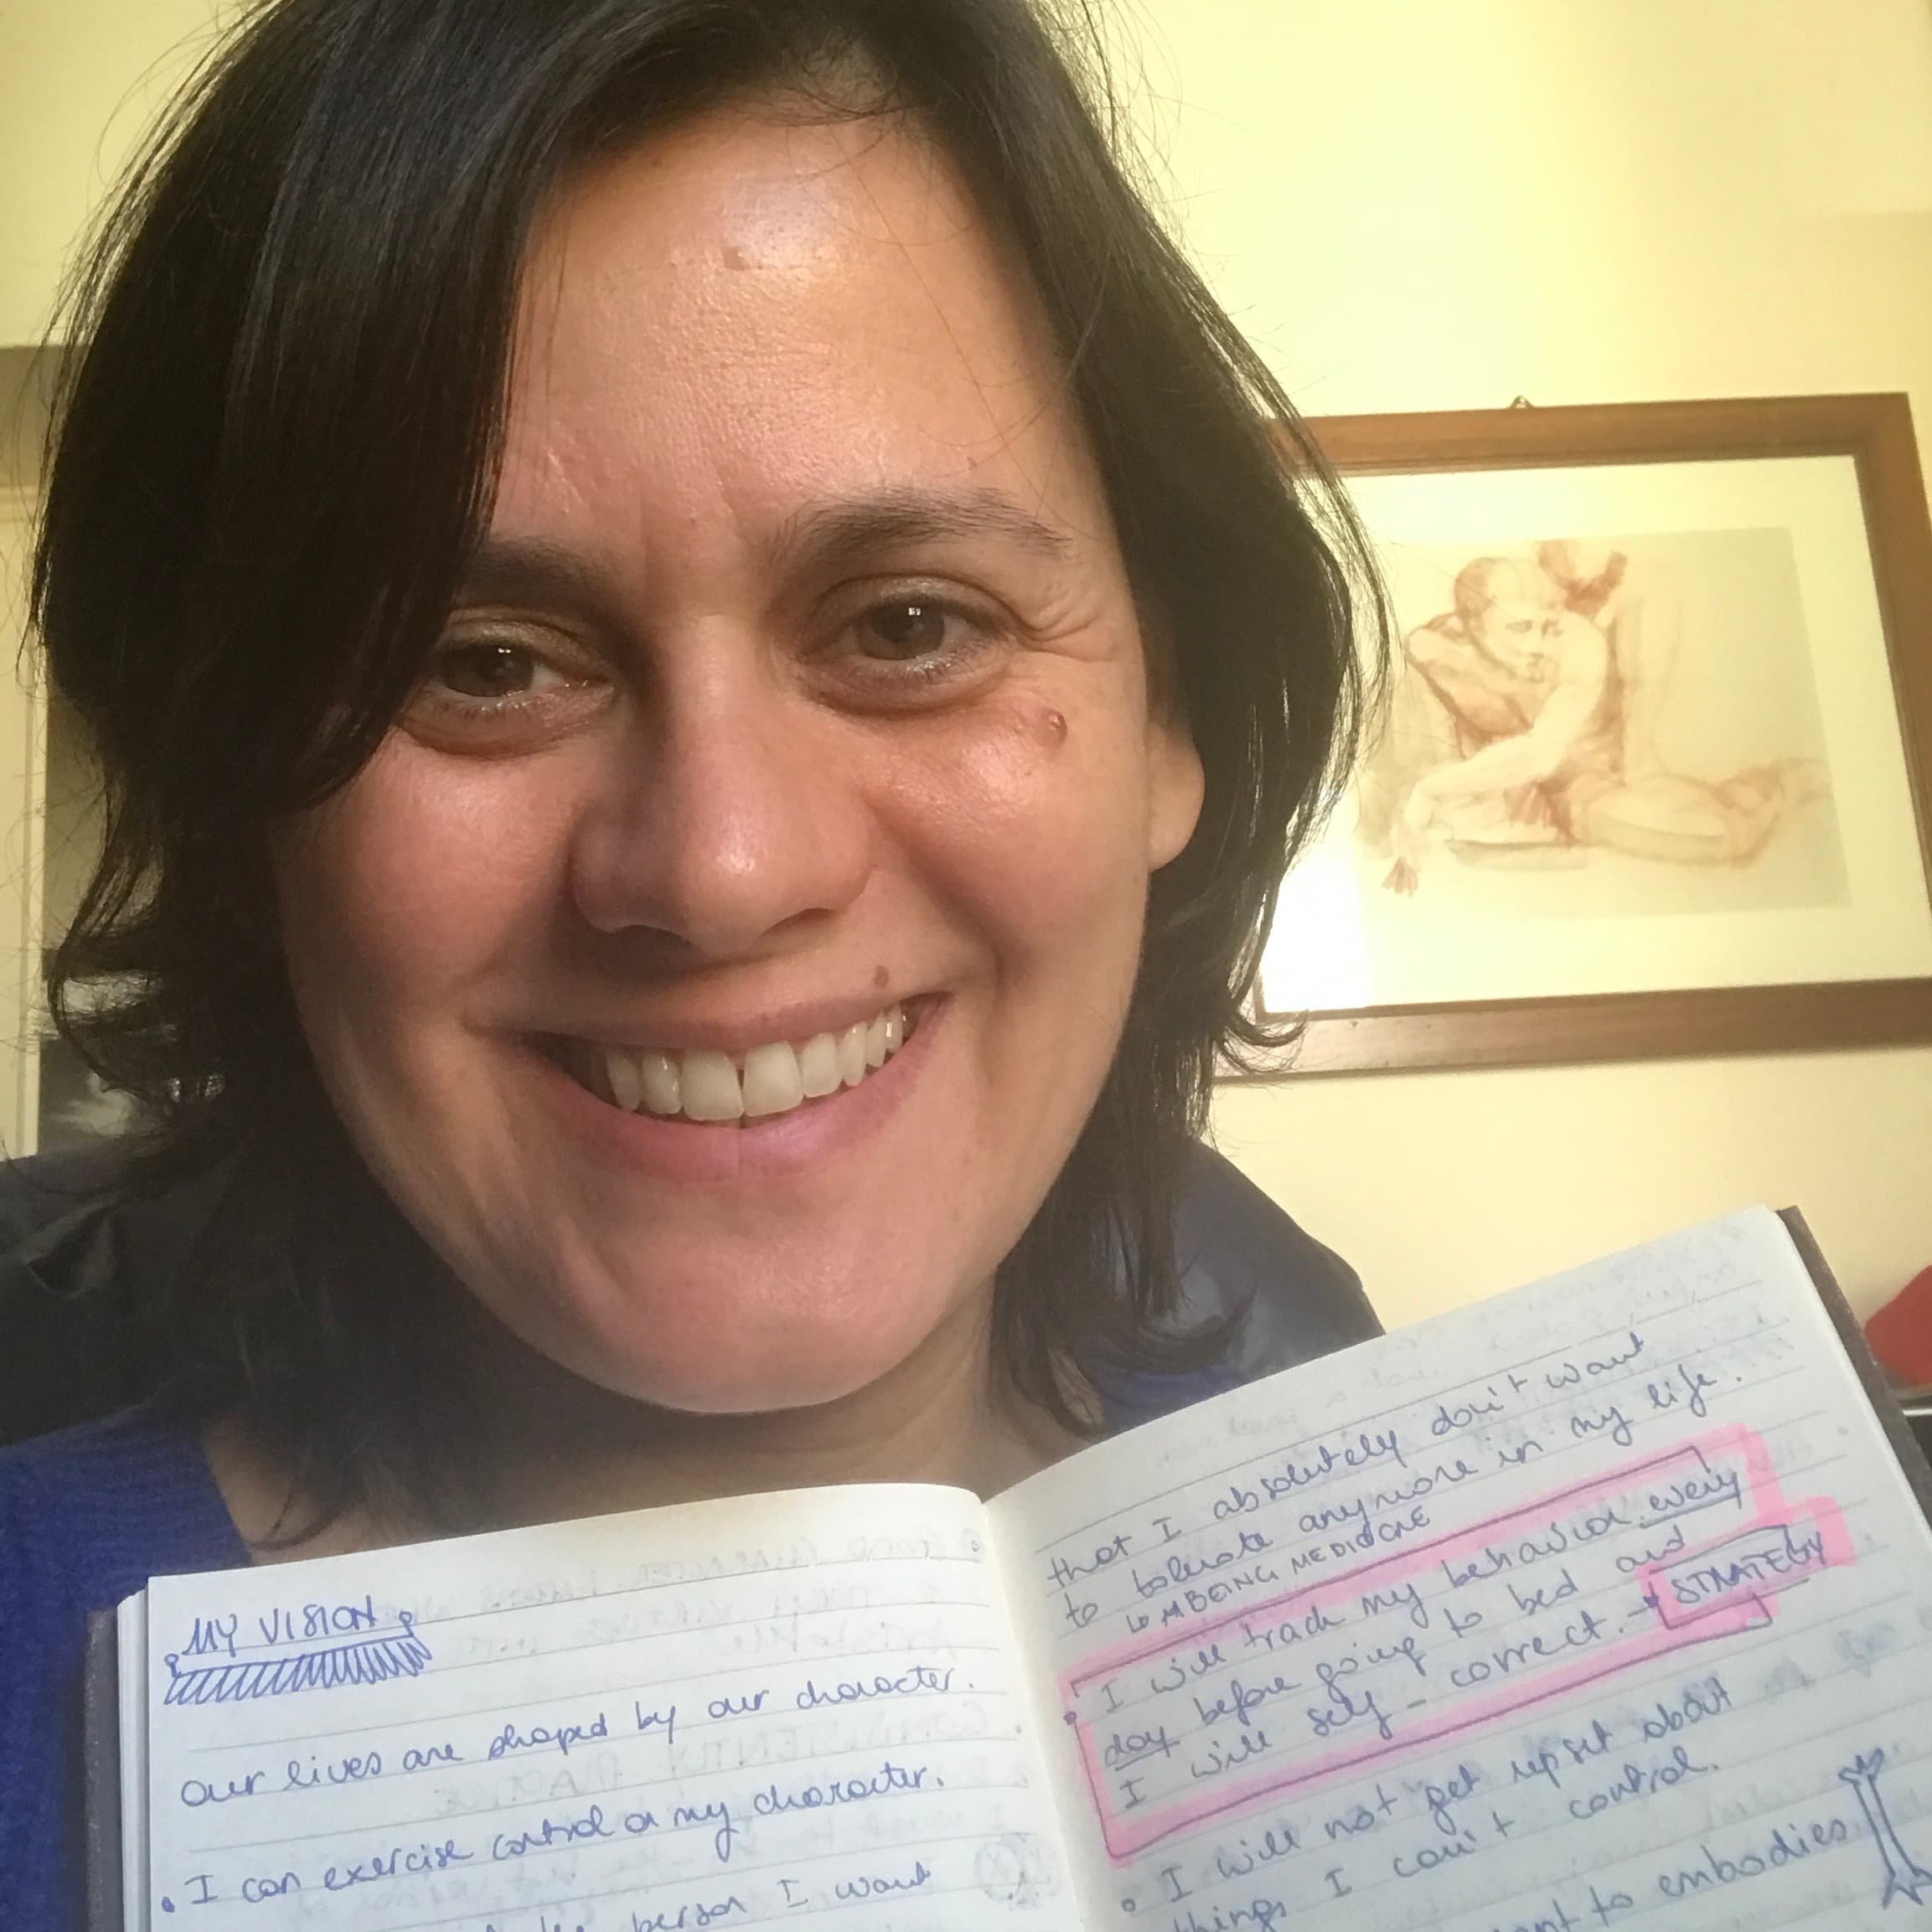 MY VISION
our lives are shaped by our character.
• I can exercise control on my character.
person I want
that I absolutely don't want
to tolerate anymore in my life.
BEING MEDIOCRE
• I will track my behavior every
day before going to bed and
I will self-correct. → STRATEGY
• I will not get upset about
things I can't control.
to embodies